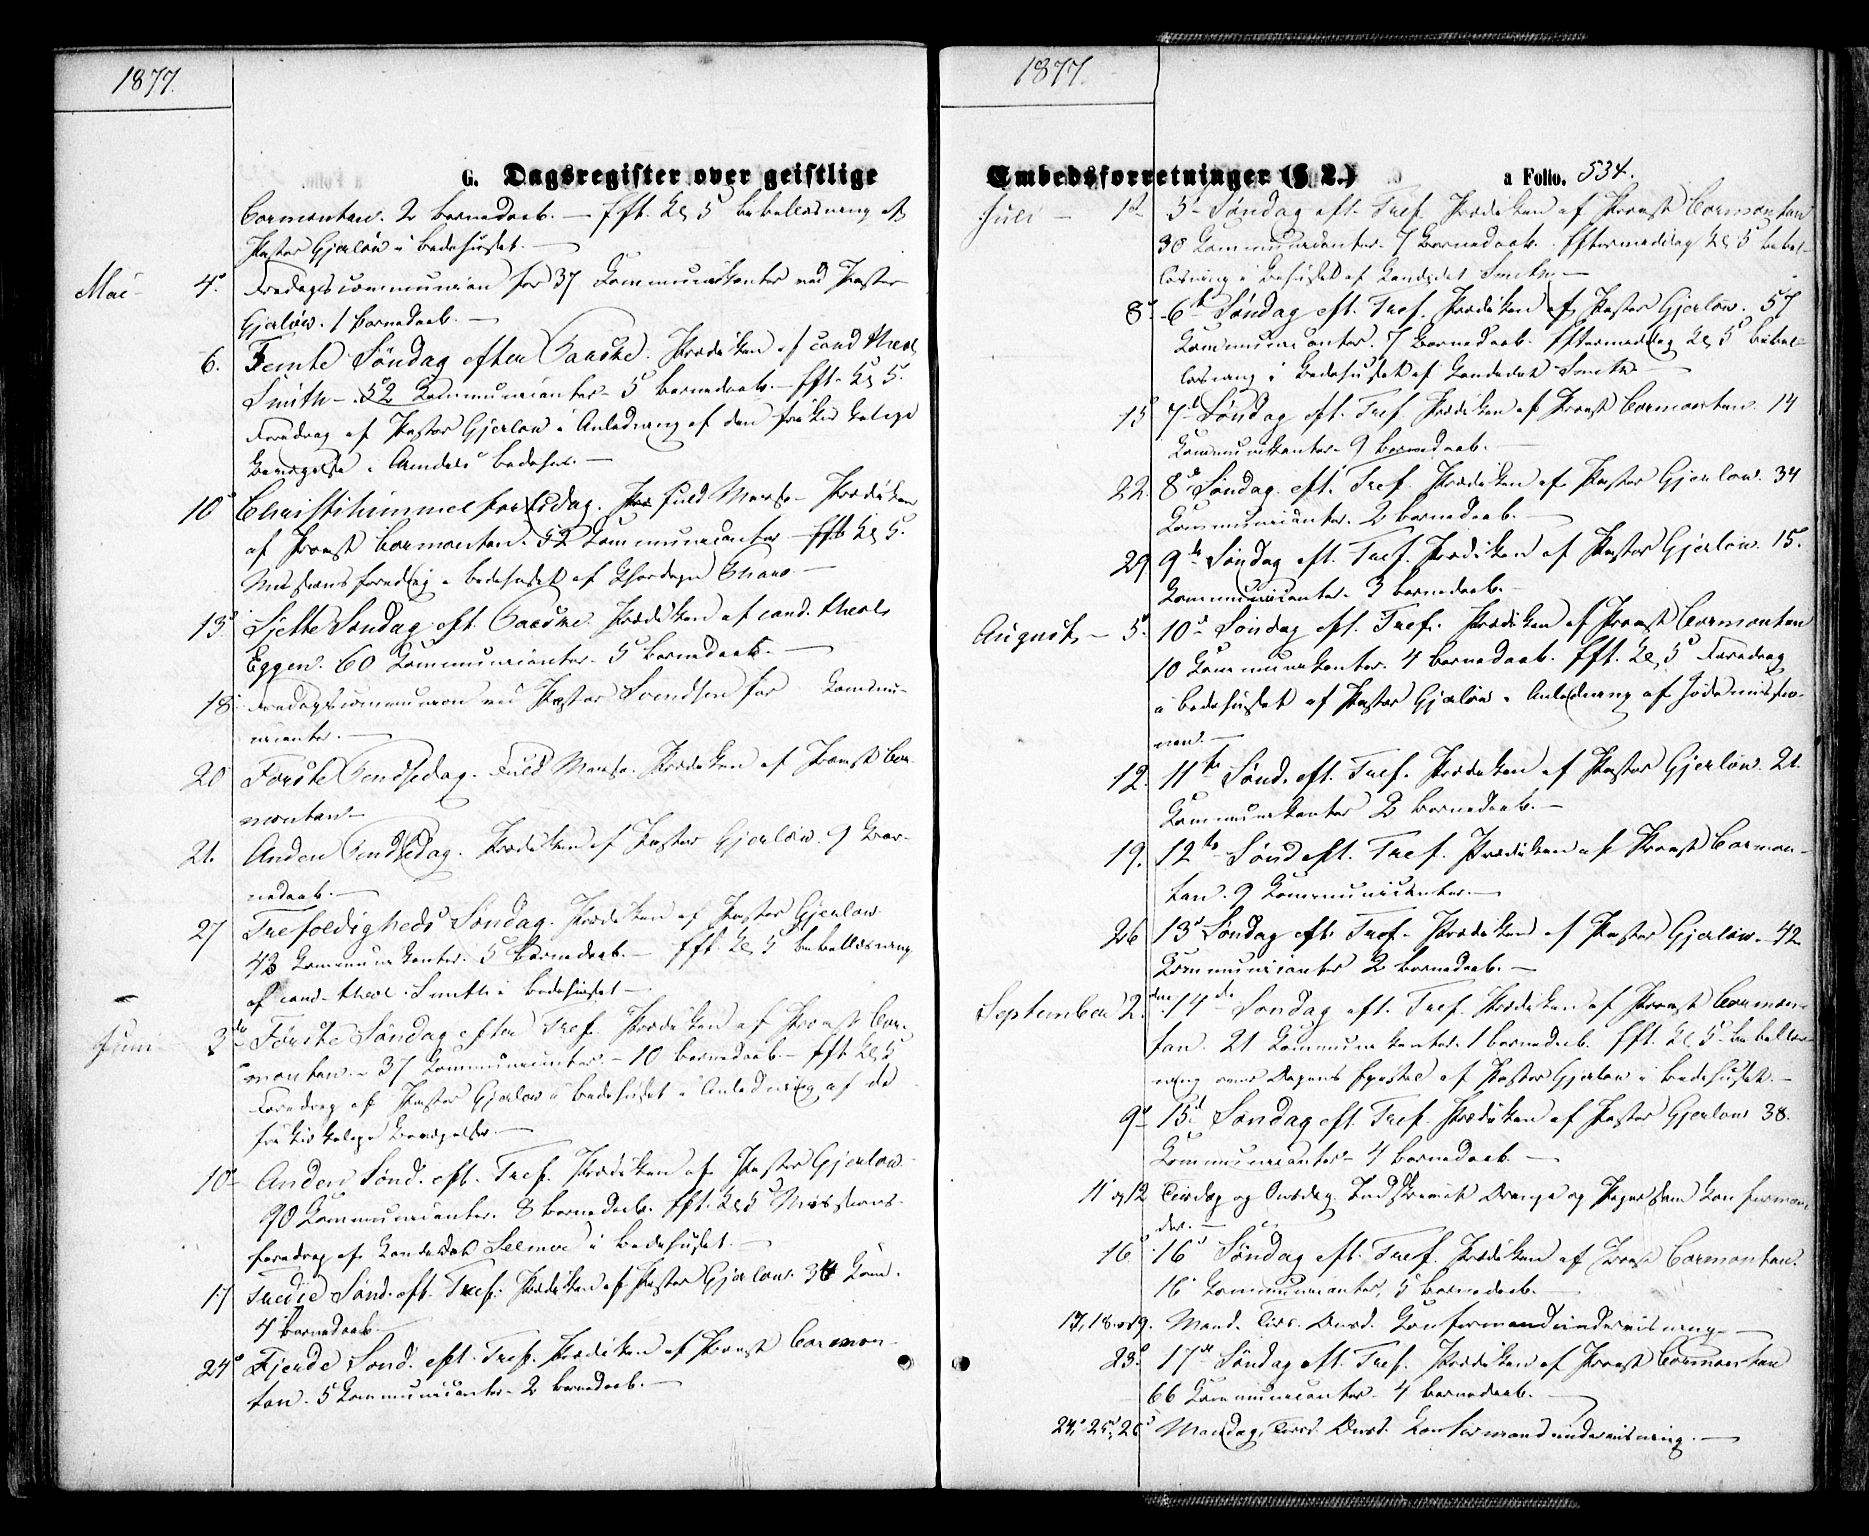 1877.
G. Dagsregister over geistlige
Cormontan. 2 Barnedaab. — Eft. Kl 5 Bibellæsning af
Pastor Gjerløw i Bedehuset. —
Mai - 4de Fredagscommunion for 37 Kommunikanter ved Pastor
Gjerløw. 1 Barnedaab. —
6. Femte Søndag efter Paaske. Prædiken af cand theol
Smith - 52 Kommunicanter - 5 Barnedaab. - Eft. Kl 5.
Foredrag af Pastor Gjerløw i Anledning af den frikirkelige
Bevægelse i Arendals Bedehus. —
10 Christihimmelfartsdag. Fuld Messe - Prædiken
af Provst Cormontan. 52 Communicanter - Eft Kl 5.
Missionsforedrag i Bedehuset af
13 Sjette Søndag eft. Paaske. Prædiken af cand. theol.
Eggen. 60 Kommunicanter. 5 Barnedaab. —
18 Fredagscommunion ved Pastor Svendsen for Kommu-
nicanter. —
20 Første Pindsedag. Fuld Messe. Prædiken af Provst Cor-
montan —
21. Anden Pindsedag. Prædiken af Pastor Gjerløw. 9 Bar-
nedaab. —
27 Trefoldigheds Søndag. Prædiken af Pastor Gjerløw
43 Kommunikanter. 5 Barnedaab. - Eft. Kl 5 Bibellæsning
af cand. theol. Smith i Bedehuset —
Juni 3de Første Søndag efter Tref. Prædiken af Provst Cor-
montan. - 37 Kommunicanter. - 10 Barnedaab - Eft Kl 5
Foredrag af Pastor Gjerløw i Bedehuset i Anledning af de
frikirkelige Bevægelser. —
10 Anden Sønd. eft. Tref. Prædiken af Pastor Gjerløw.
90 Kommunicanter. 8 Barnedaab. Eft. Kl 5 Missions-
foredrag af Kandidat Selmer i Bedehuset. —
17 Tredie Sønd. eft. Tref. Prædiken af Pastor Gjerløw. 34 Kom.
4 Barnedaab
24 Fjerde Sønd. eft. Tref. Prædiken af Provst Cormon-
tan. 5 Kommunicanter - 2 Barnedaab. —
1877.
Embedsforretninger (§ 2.) a Folio. 534.
Juli - 1ste 5te Søndag eft. Tref. Prædiken af Provst Cormontan
30 Kommunicanter. 7 Barnedaab. Eftermiddag Kl 5 Bibel-
læsning i Bedehuset af Kandidat Smith —
8de 6te Søndag eft. Tref. Prædiken af Pastor Gjerløw. 57
Kommunicanter. 7 Barnedaab. Eftermiddag Kl 5 Bibel-
læsning i Bedehuset af Kandidat Smith —
15 7de Søndag eft. Tref. Prædiken af Provst Cormontan. 14
Kommunikanter - 9 Barnedaab. —
22. 8de Søndag. eft. Tref. Prædiken af Pastor Gjerløw. 34
Kommunicanter. 2 Barnedaab. —
29 9de Søndag eft. Tref. Prædiken af Pastor Gjerløw. 15.
Kommunicanter. 3 Barnedaab. —
August, - 5. 10de Søndag eft. Tref. Prædiken af Provst Cormontan
10 Kommunikanter. 4 Barnedaab. Eft. Kl 5 Foredrag
i Bedehuset af Pastor Gjerløw i Anledning af Jødemissio-
nen. —
12. 11te Sønd. eft. Tref. Prædiken af Pastor Gjerløw. 21.
Kommunikanter 2 Barnedaab. —
19. 12te Sønd eft. Tref. Prædiken af Provst Cormon-
tan. 9 Kommunicanter. —
26 13de Søndag eft. Tref. Prædiken af Pastor Gjerløw. 42
Kommunicanter 2 Barnedaab. —
September 2den 14de Søndag eft. Tref. Prædiken af Provst Cormon-
tan. 21 Kommunikanter. 1 Barnedaab. Eft. Kl 5 Bibellæs-
ning over Dagens Epistel af Pastor Gjerløw i Bedehuset. —
9de 15de Søndag eft. Tref. Prædiken af Pastor Gjerløw 38.
Kommunicanter - 4 Barnedaab. —
11 og 12 Tirsdag og Onsdag Indskrevet Drenge og Piger som Konfirman-
der. —
16 16de Søndag eft. Tref. Prædiken af Provst Cormontan.
16 Kommunicanter, 5 Barnedaab. —
17, 18 og 19. Mand. Tirs. Onsd. Konfirmandundervisning —
23de 17de Søndag eft. Tref. Prædiken af Provst Cormontan
66 Kommunicanter - 4 Barnedaab. —
24, 25, 26 Mandag, Tirsd. Onsd. Konfirmandundervisning. —